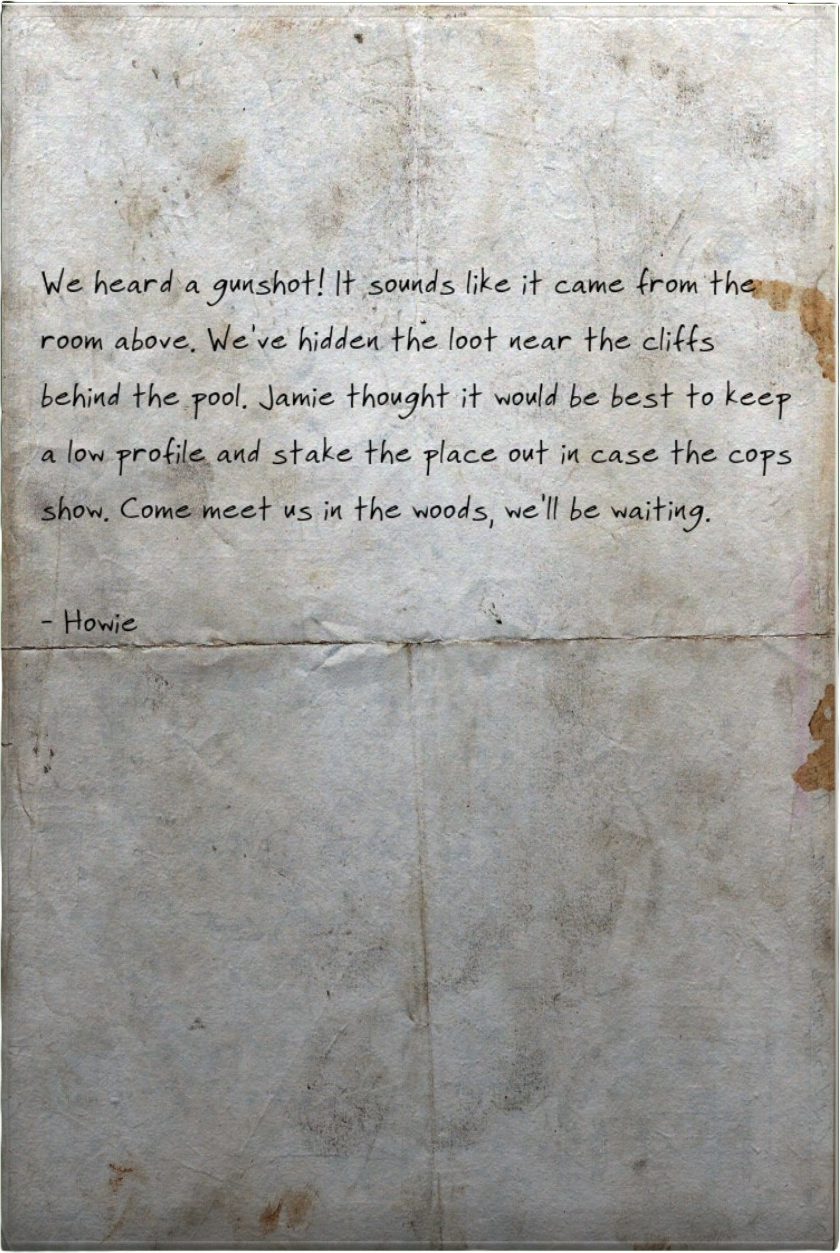 We heard a gunshot! It sounds like it came from the
room above. We've hidden the loot near the cliffs
behind the pool. Jamie thought it would be best to keep
a low profile and stake the place out in case the cops
show. Come meet us in the woods, we'll be waiting.
- Howie